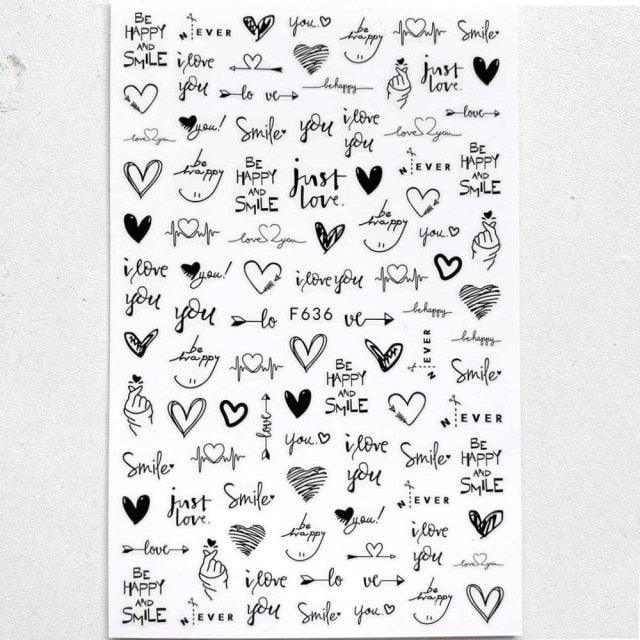 BE HAPPY AND SMILE
N EVER
you.
be happy
Smile
i love you
be happy
just love.
lo ve
love
love you
you!
Smile
you
i love you
love you
be happy
BE HAPPY AND SMILE
just love.
N EVER
BE HAPPY AND SMILE
be happy
you.
love you
i love you
you!
i love you
be happy
you
lo F636 ve
be happy
be happy
N EVER
BE HAPPY AND SMILE
Smile
love
N EVER
you.
i love you
Smile
BE HAPPY AND SMILE
Smile
just love.
Smile
N EVER
be happy
you!
i love you
love
love you
BE HAPPY AND SMILE
N EVER
i love you
lo ve
Smile
you.
be happy